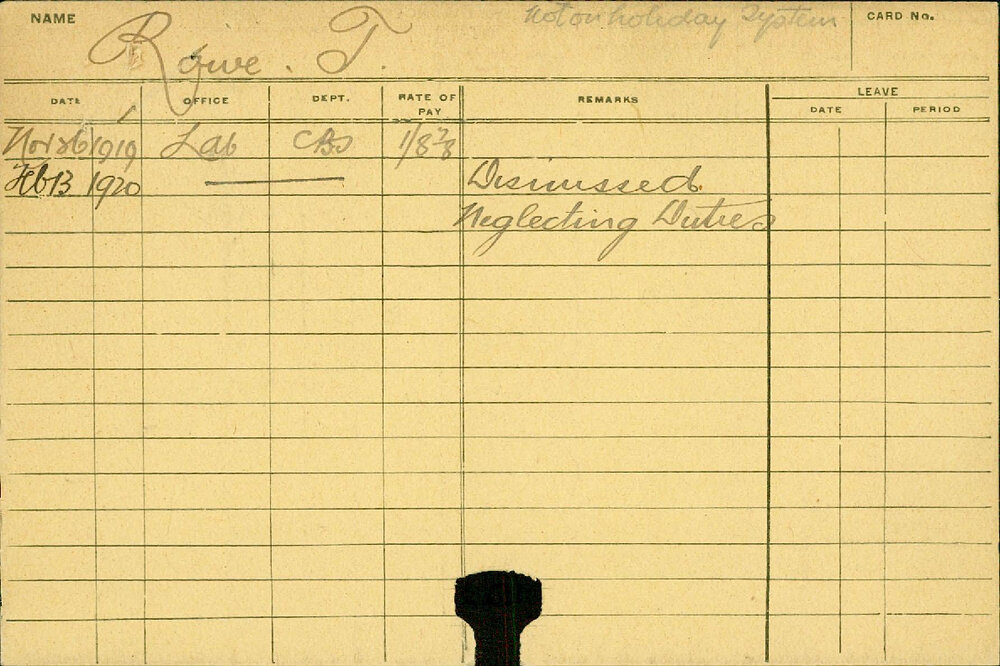 NAME Rowe. T. Not on holiday System CARD No.
DATE OFFICE DEPT. RATE OF PAY REMARKS LEAVE
DATE PERIOD
Nov 26 1919 Lab 1/8 7/8
Feb 13 1920 Dismissed.
Neglecting Duties